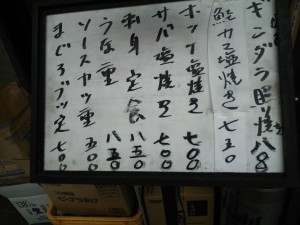 ギンダラ照焼 八〇〇
鮭カマ塩焼き 七五〇
ホッケ塩焼き 七〇〇
サバ塩焼き 七〇〇
刺身定食 八五〇
うな重 八五〇
ソースカツ重 五〇〇
まぐろブツ定 七〇〇